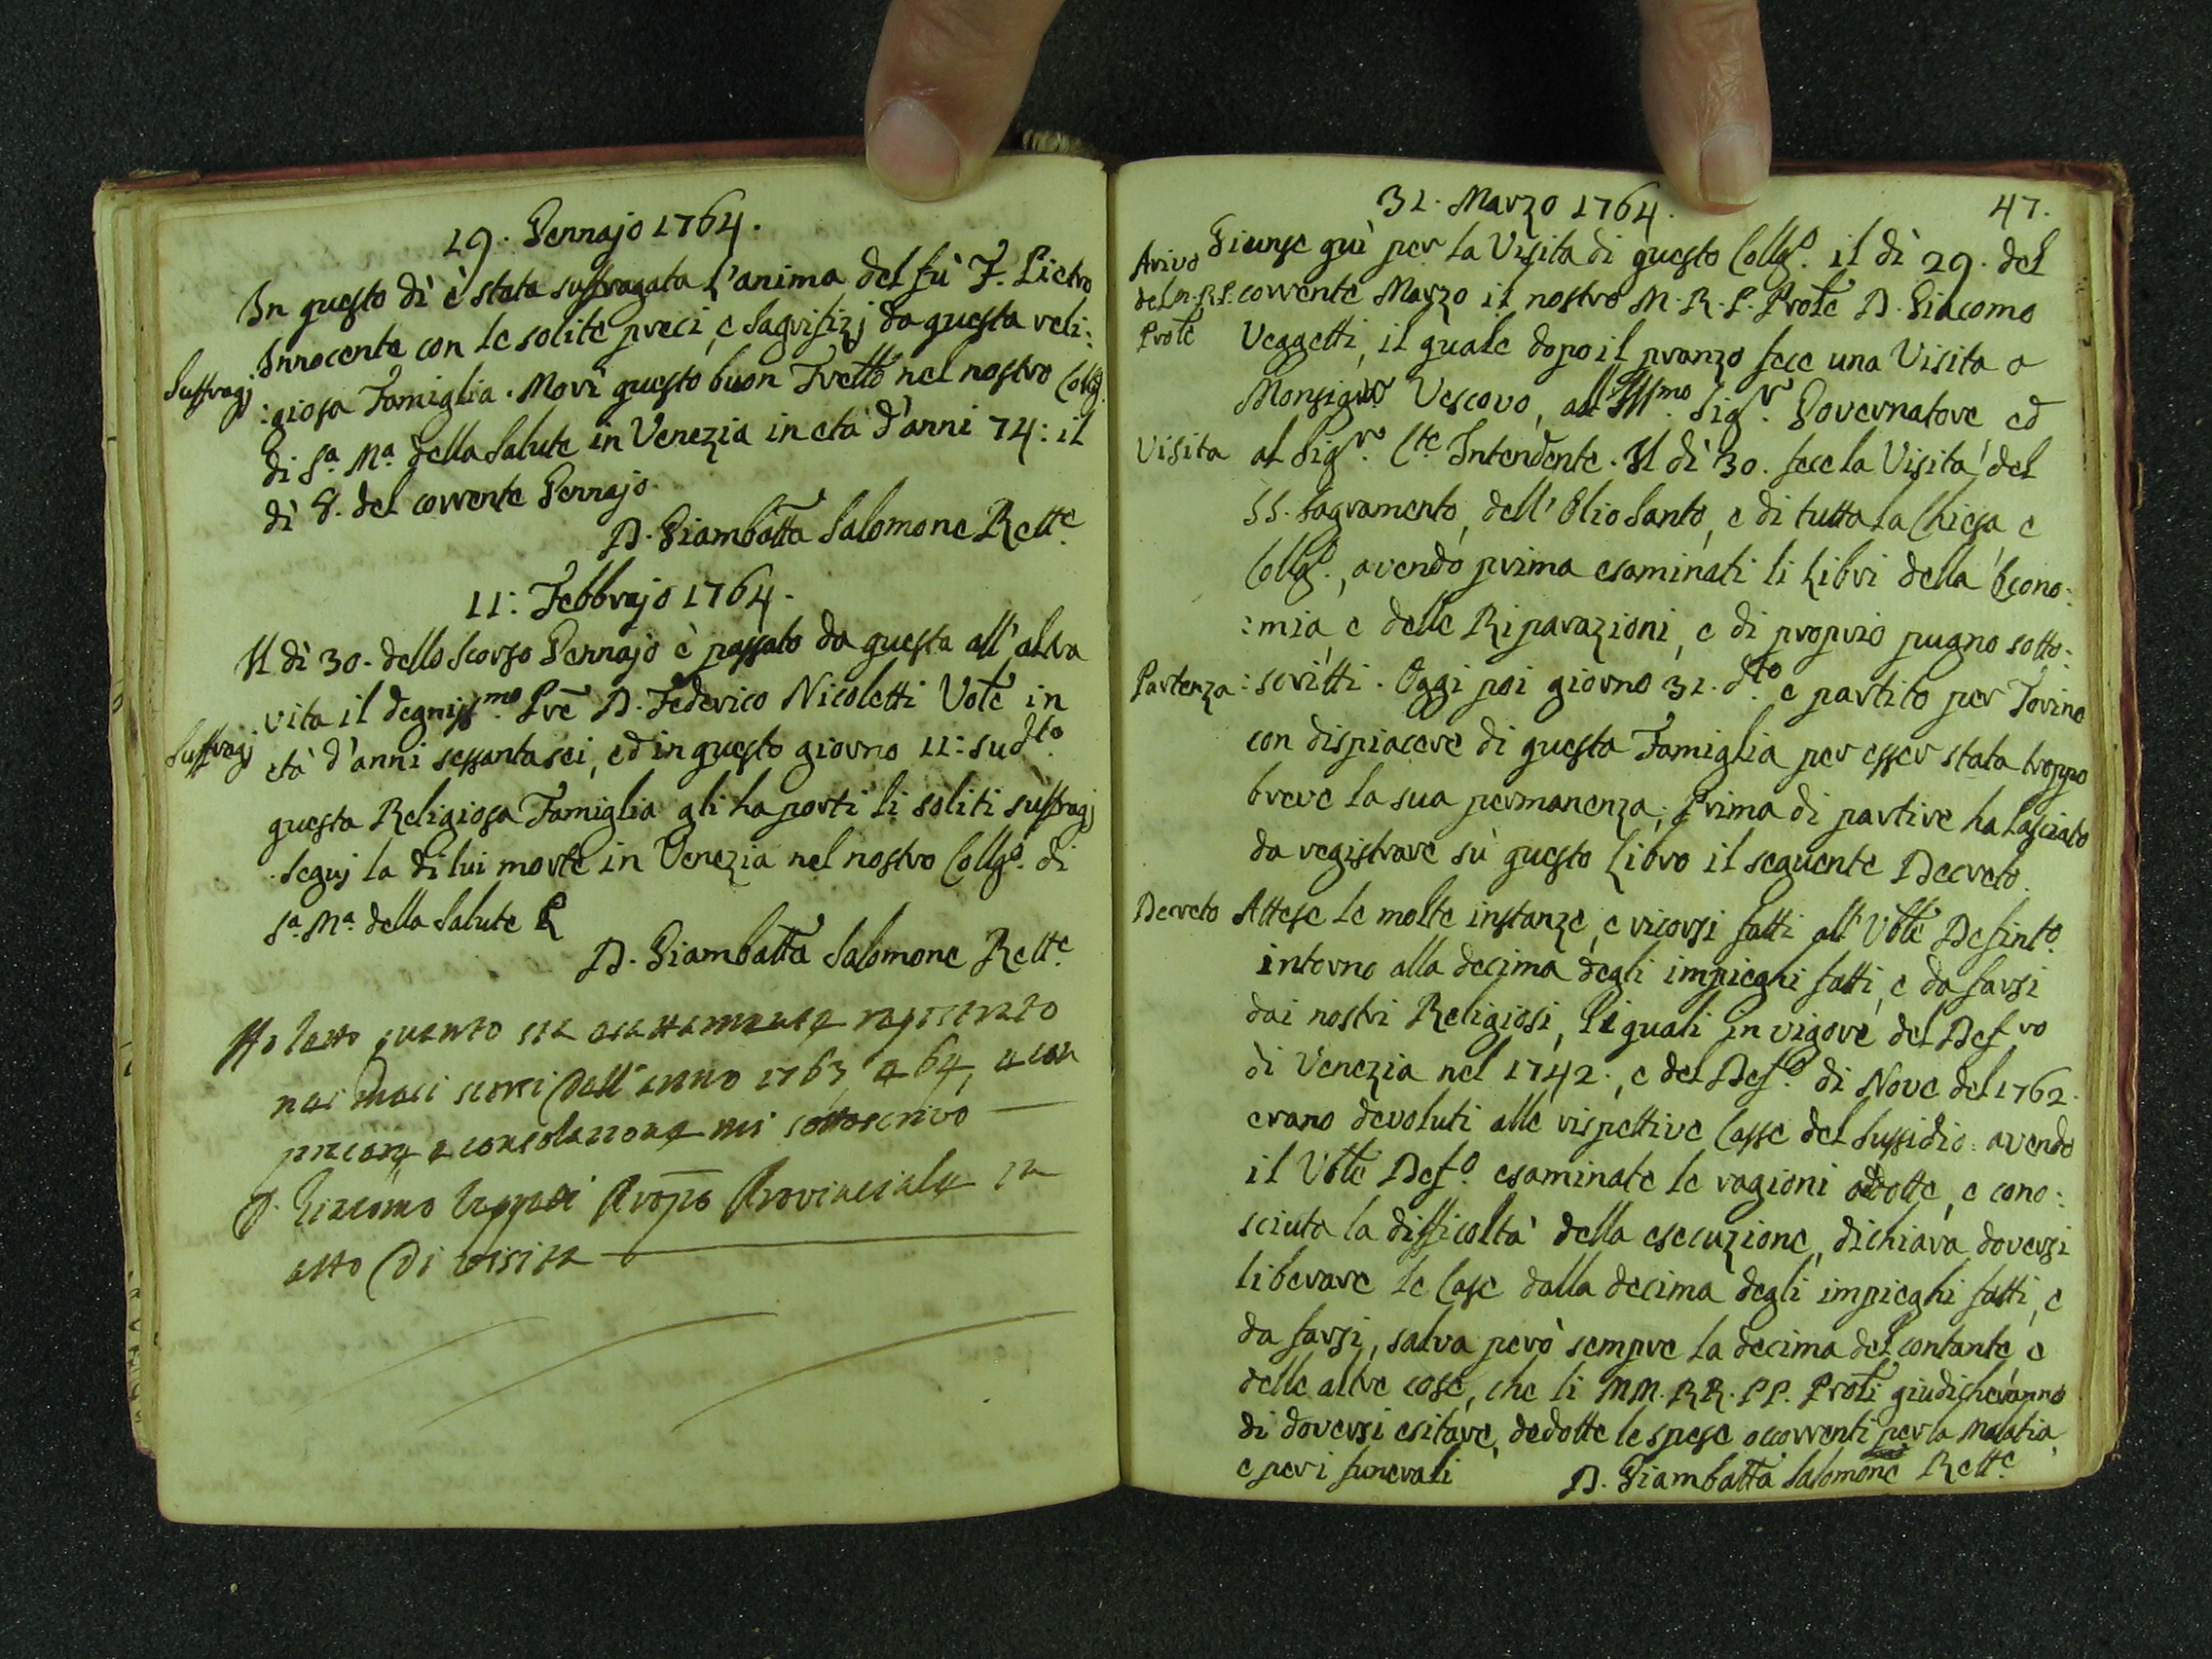 19. Gennajo 1764.
In questo dì è stata suffragata l'anima del fù F. Pietro
Innocente con le solite preci, e sagrifizj da questa reli:
Suffragj :giosa Famiglia. Morì questo buon Frello nel nostro Collg.
di Sa. Ma. della Salute in Venezia in età d'anni 74: il
dì 8. del corrente Gennajo.
D. Giambatta Salomone Rette.
11: Febbrajo 1764.
Il dì 30. dello scorso Gennajo è passato da questa all'altra
vita il degnissmo. Pre D. Federico Nicoletti Vole in
Suffragj età d'anni sessantasei, ed in questo giorno 11: sudto.
questa Religiosa Famiglia gli ha porti li soliti suffragj
. seguj la di lui morte in Venezia nel nostro Collgo. di
Sa. Ma. della Salute
D. Giambatta Salomone Rette.
Ho letto quanto sta esattamente
nei mesi scorsi dell'anno 1763, e 64, e con
piacere e consolazione mi sottoscrivo
D. Giacomo Vegetti Propo Provinciale in
atto di visita
31. Marzo 1764. 47.
Arivo Giunse quì per la Visita di questo Collgo. il dì 29. del
del M.R.P. corrente Marzo il nostro M. R. P. Prole D. Giacomo
Prole Veggetti, il quale dopo il pranzo fece una Visita a
Monsignor Vescovo, all'Illmo. Sigr. Governatore ed
Visita al Sigr. Cte. Intendente. Il dì 30. fece la Visita del
SS. Sagramento, dell'Olio Santo, e di tutta la Chiesa e
Collgo., avendo prima esaminati li Libri della Econo:
:mia, e delle Riparazioni, e di proprio pugno sotto:
Partenza :scritti. Oggi poi giorno 31. dto. e partito per Torino
con dispiacere di questa Famiglia per esser stata troppo
breve la sua permanenza; Prima di partire ha lasciato
da registrare sù questo Libro il seguente Decreto.
Decreto Attese le molte instanze, e ricorsi fatti all' Vble Definto.
intorno alla decima degli impieghi fatti, e da farsi
dai nostri Religiosi, li quali in vigore del Defro
di Venezia nel 1742., e del Defo. di Nove del 1762.
erano devoluti alle rispettive Casse del Sussidio: avendo
il Vble Defo. esaminate le ragioni adotte, e cono:
sciuta la difficoltà della esecuzione, dichiara doversi
liberare le Case dalla decima degli impieghi fatti, e
da farsi, salva però sempre la decima del contante, e
delle altre cose, che li MM. RR. PP. Proli giudicheranno
di doversi esitare, dedotte le spese occorrenti per la malatia,
e per i funerali D. Giambatta Salomone Rette.